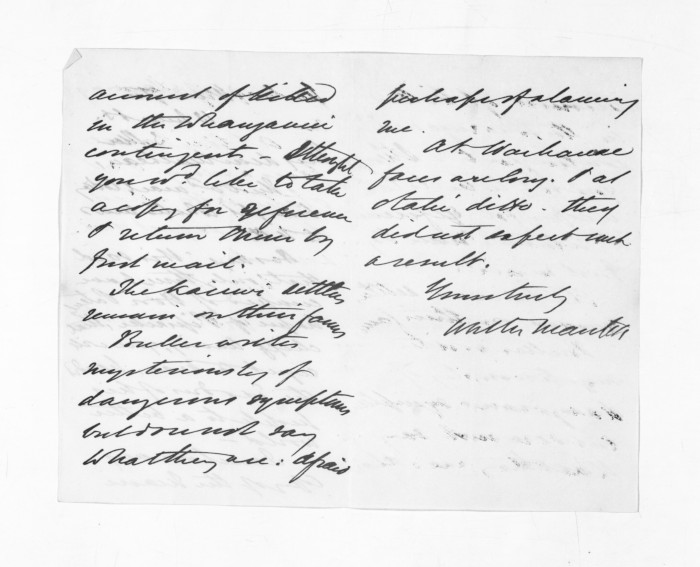 account of killed
in the Whanganui
contingents - I thought
you wd. like to take
a copy for reference
& return their by
first mail.
The Kaiiwi settlers
remain on their farms
Buller writes
mysteriously of
dangerous symptoms
but does not say
what they are: afraid
perhaps of alarming
me.
At Waikanae
faces are long. & at
Otaki ditto. they
did not expect such
a result.
Yours truly
Walter Mantell